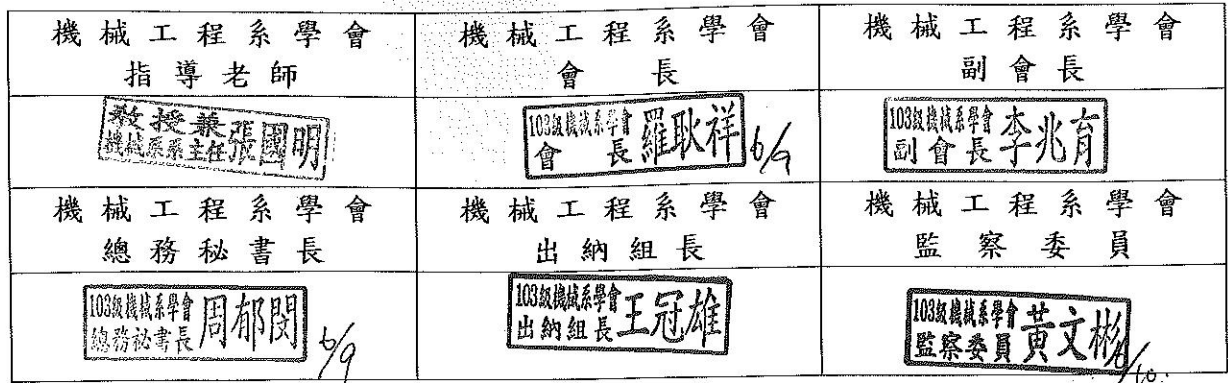 機械工程系學會
指導老師
機械工程系學會
會長
機械工程系學會
副會長
教授兼
機械系系主任
張國明
103級機械系學會
會長
羅耿祥
6/9
103級機械系學會
副會長
李兆育
機械工程系學會
總務秘書長
機械工程系學會
出納組長
機械工程系學會
監察委員
103級機械系學會
總務秘書長
周郁閔
6/9
103級機械系學會
出納組長
王冠雄
103級機械系學會
監察委員
黃文彬
6/10.